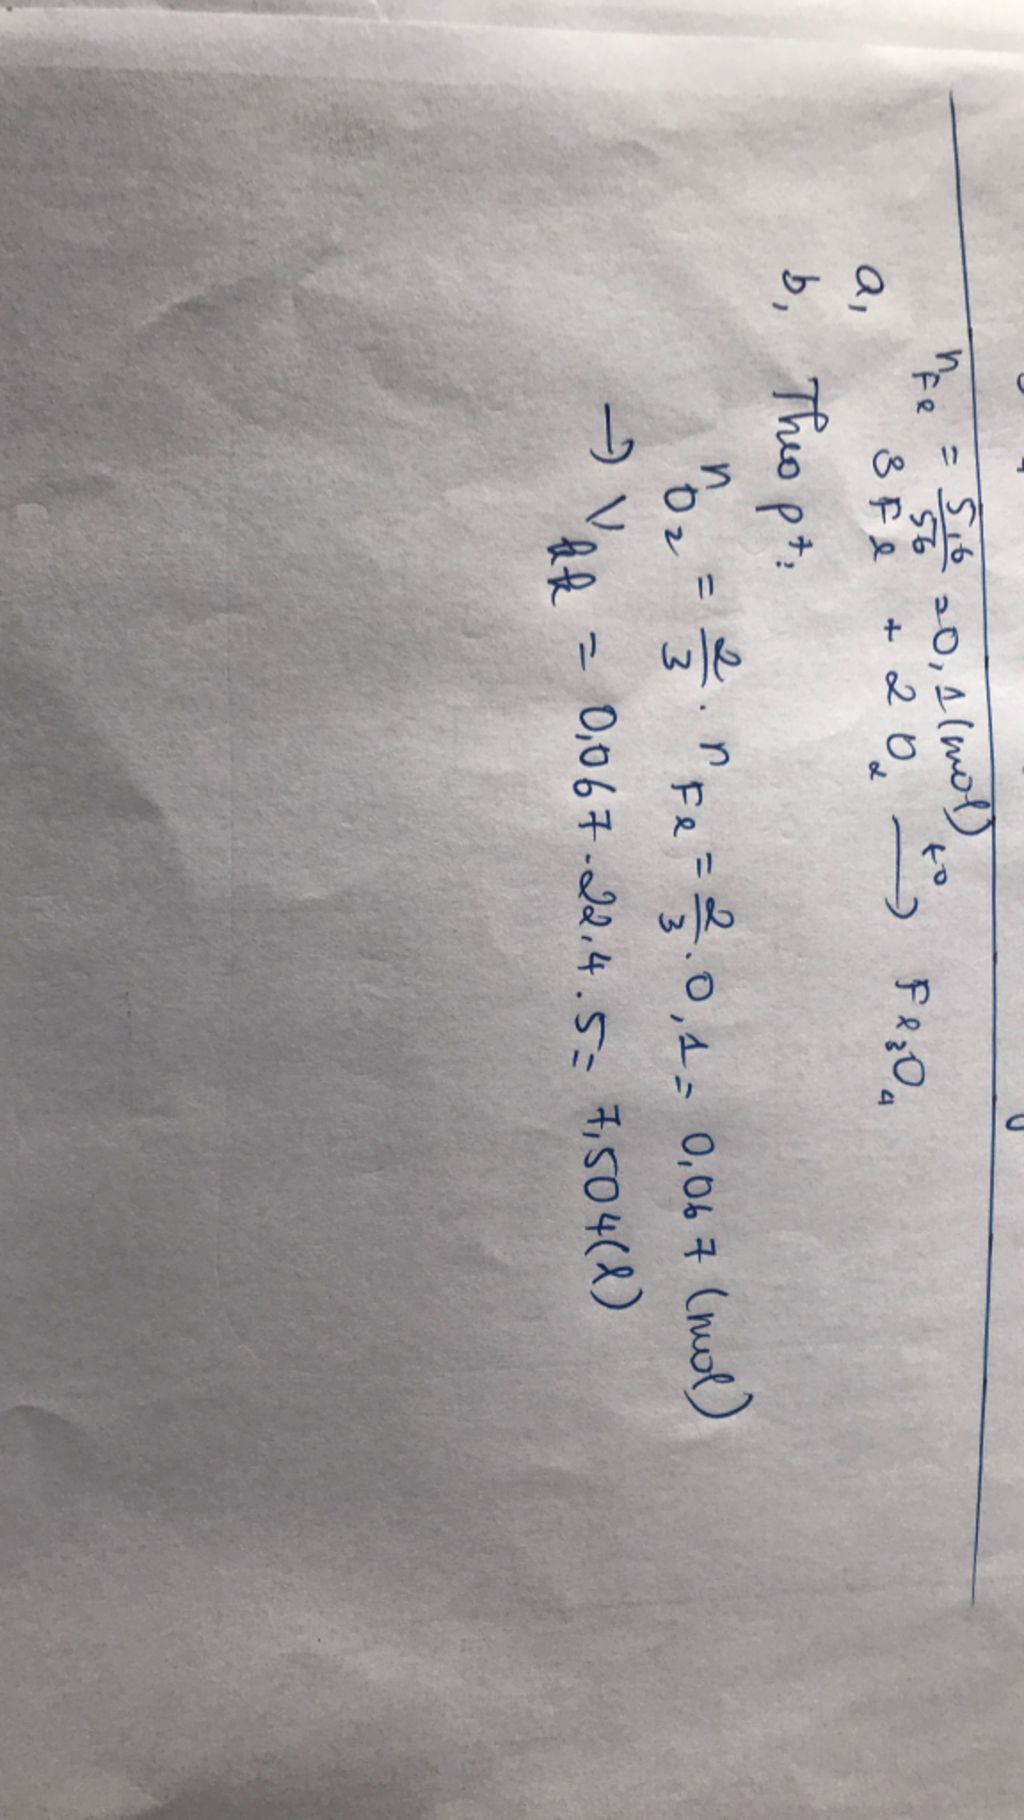 nFe = 5,6/56 = 0,1 (mol)
a, 3Fe + 2O2 —t°→ Fe3O4
b, Theo pt:
nO2 = 2/3 . nFe = 2/3 . 0,1 = 0,067 (mol)
→ Vkk = 0,067 . 22,4 . 5 = 7,504 (l)